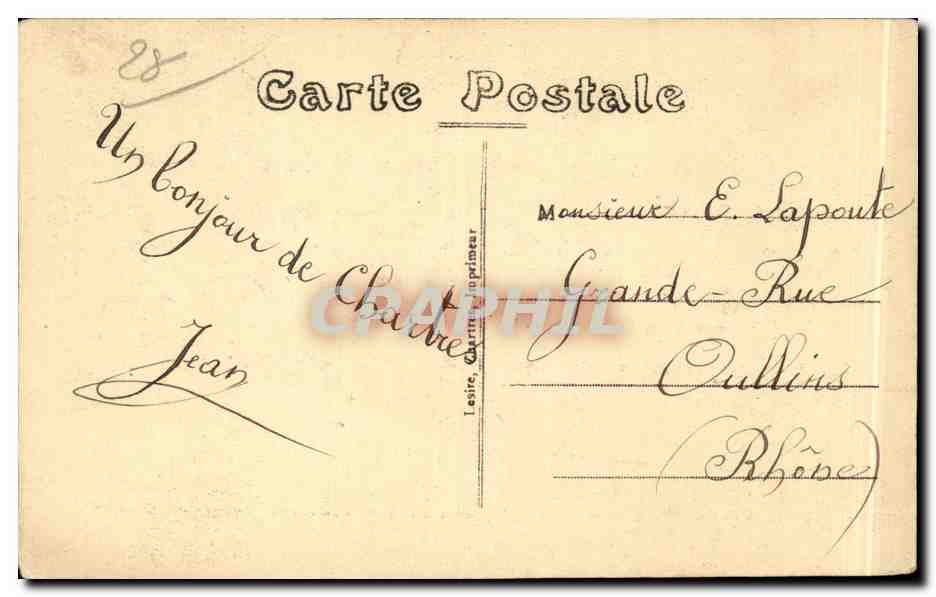 28
Carte Postale
Un bonjour de Chartres
Jean
Lesire, Chartres, Imprimeur
Monsieur E. Lapoute
Grande-Rue
Oullins
(Rhône)
CPAPHIL